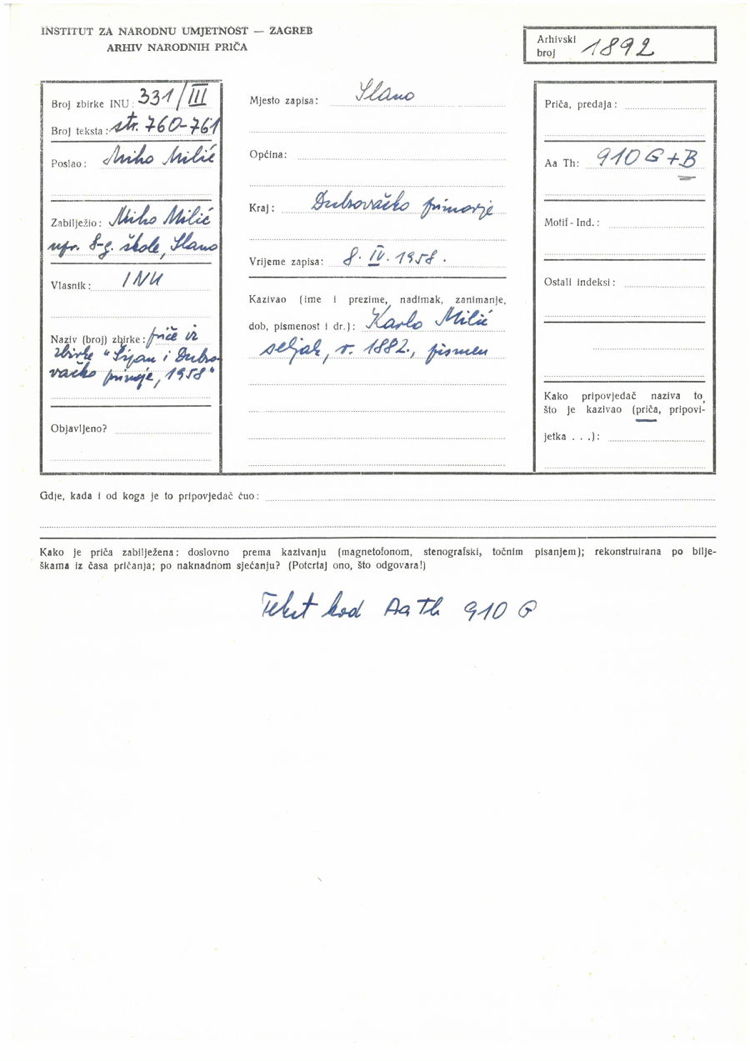 INSTITUT ZA NARODNU UMJETNOST — ZAGREB
ARHIV NARODNIH PRIČA
Arhivski
broj 1892
Broj zbirke INU: 331/III
Broj teksta: str. 760-761
Poslao: Miho Milić
Zabilježio: Miho Milić
upr. 8-g. škole, Slano
Vlasnik: INU
Naziv (broj) zbirke: priče iz
zbirke "Šipan i Dubro
vačko primorje, 1958"
Objavljeno?
Mjesto zapisa: Slano
Općina:
Kraj: Dubrovačko primorje
Vrijeme zapisa: 8. IV. 1958.
Kazivao (ime i prezime, nadimak, zanimanje,
dob, pismenost i dr.): Karlo Milić
seljak, r. 1882., pismen
Priča, predaja:
Aa Th: 910 G + B
Motif - Ind.:
Ostali indeksi:
Kako pripovjedač naziva to,
što je kazivao (priča, pripovi-
jetka . . .):
Gdje, kada i od koga je to pripovjedač čuo:
Kako je priča zabilježena: doslovno prema kazivanju (magnetofonom, stenografski, točnim pisanjem); rekonstruirana po bilje-
škama iz časa pričanja; po naknadnom sjećanju? (Potcrtaj ono, što odgovara!)
Tekst kod Aa Th 910 G